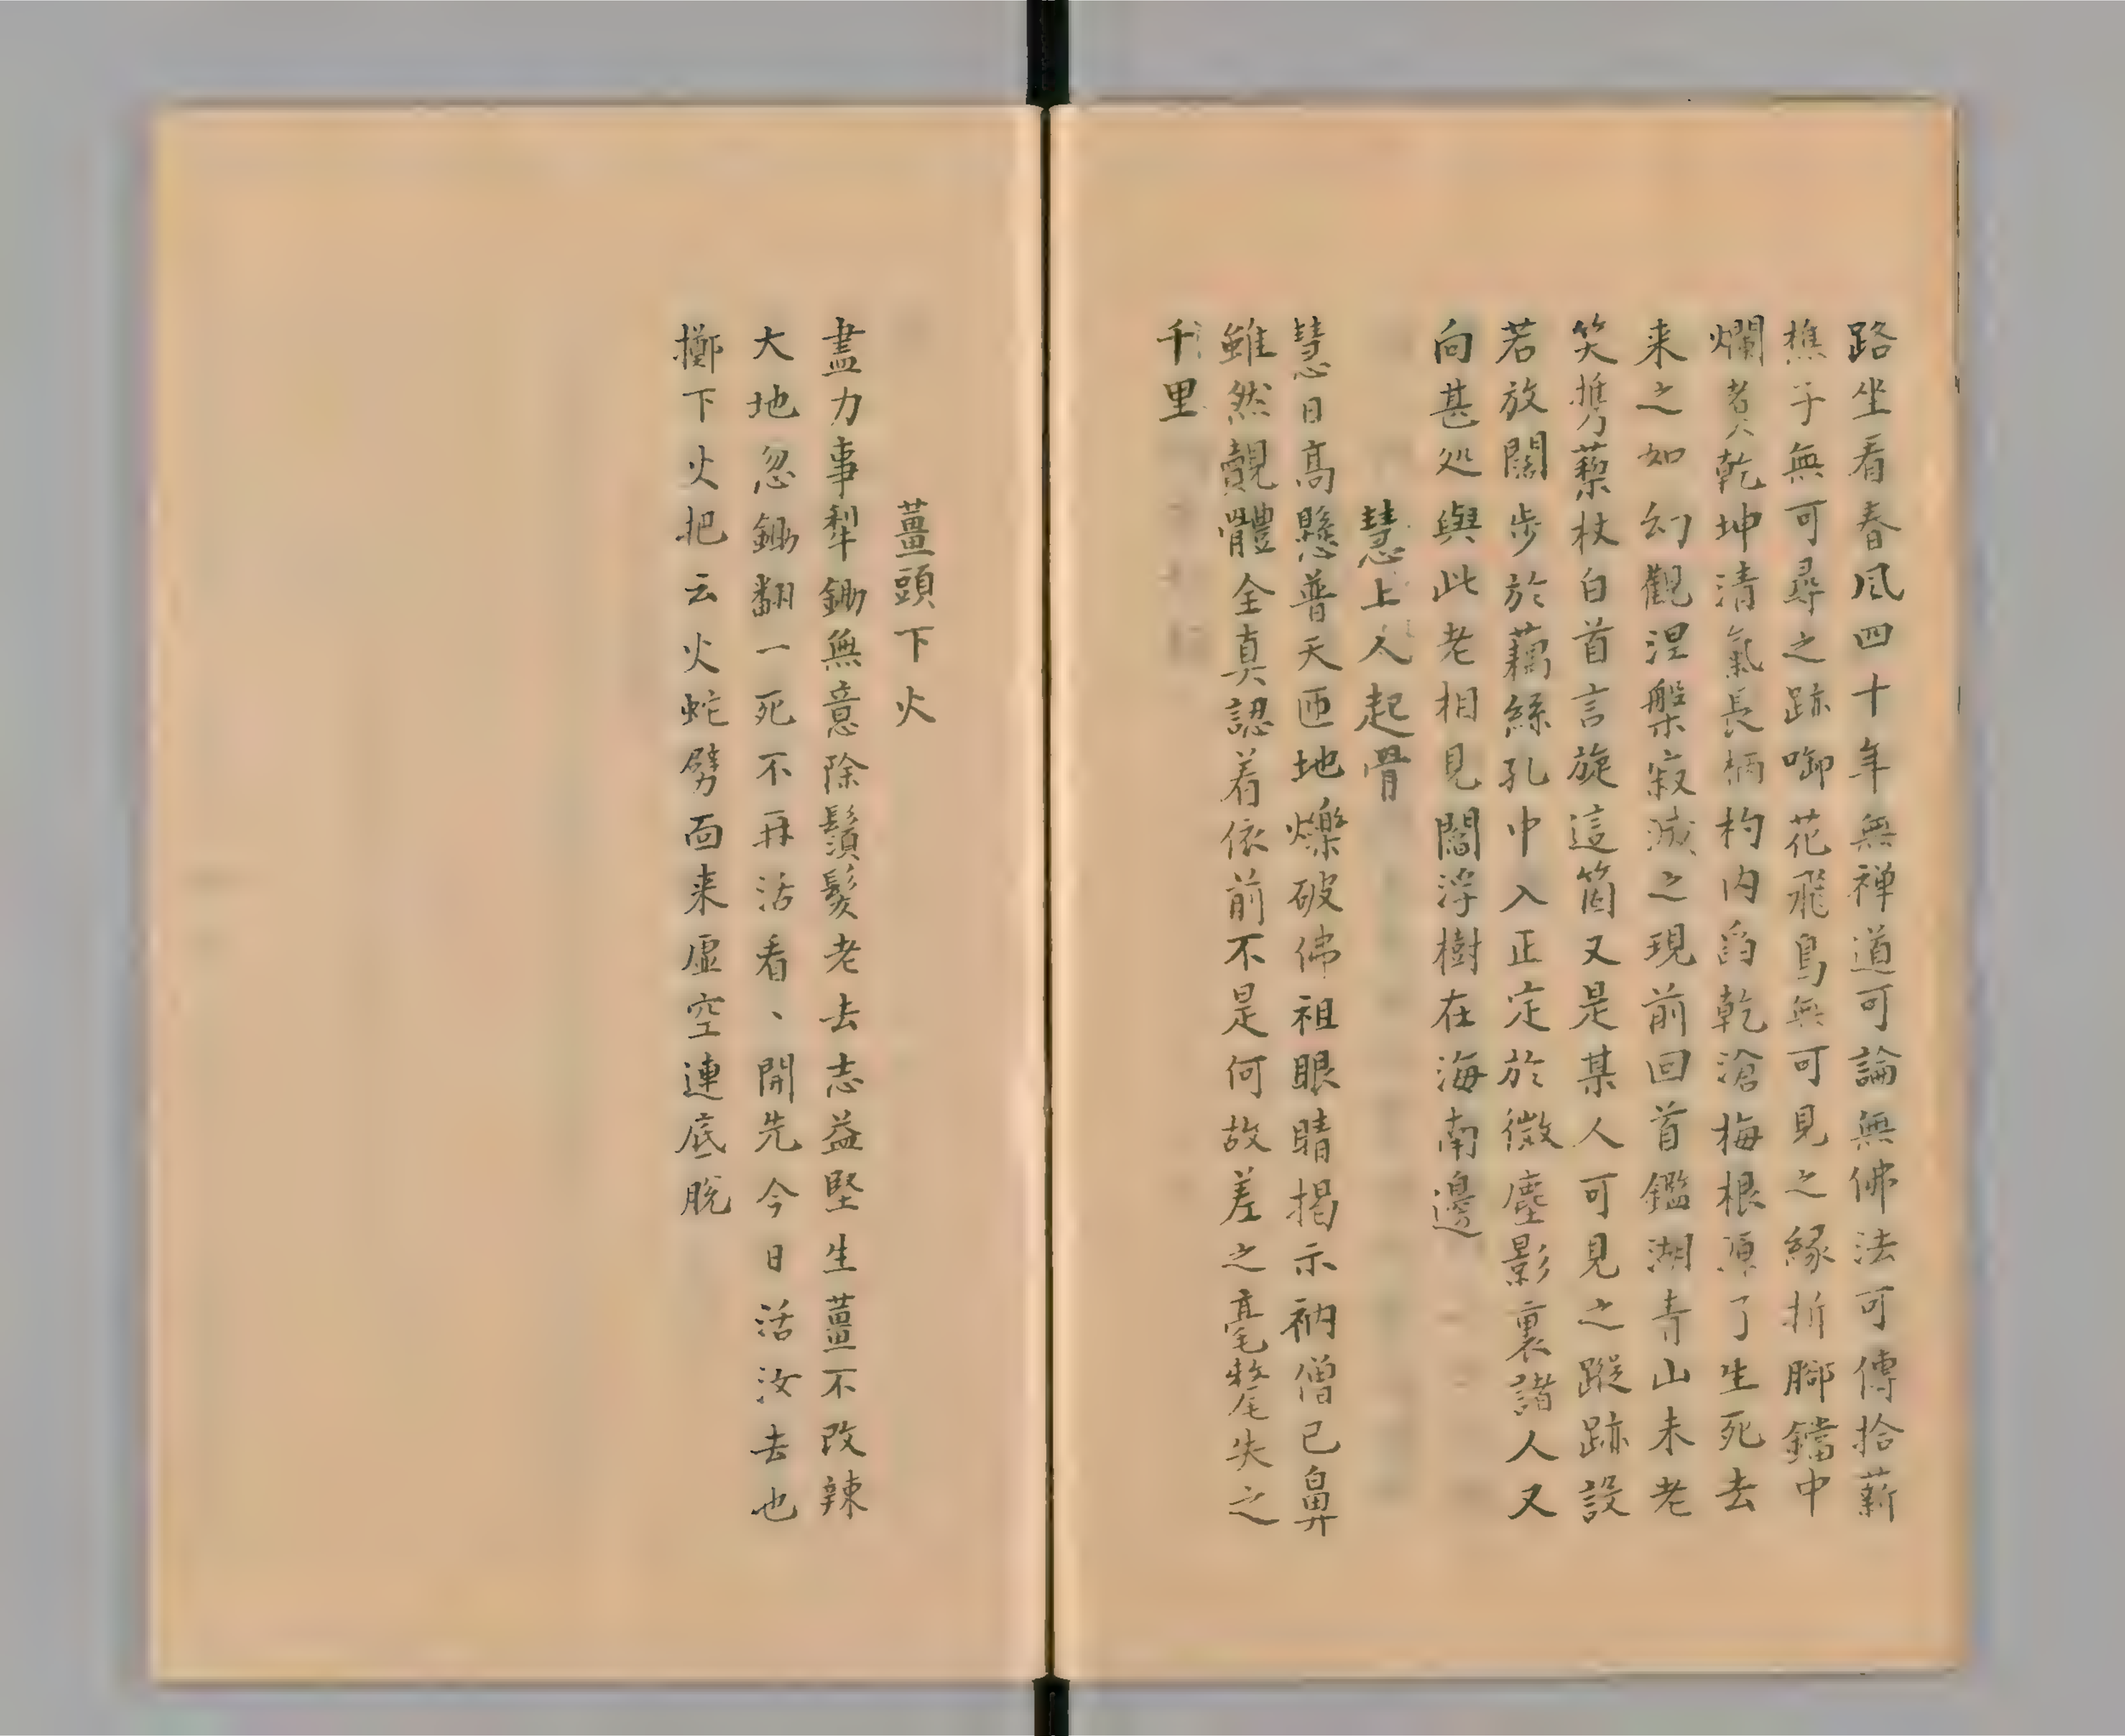 路坐看春風四十年無禅道可論無佛法可傳拾薪
樵子無可尋之跡啣花飛鳥無可見之緣折脚鐺中
爛煑乾坤清氣長柄杓内舀乾滄梅根源了生死去
来之如幻觀涅槃寂滅之現前回首鑑湖青山未老
笑携藜杖白首言旋這箇又是某人可見之蹤跡設
若放闊步於藕絲孔中入正定於微塵影裏諸人又
向甚処與此老相見閻浮樹在海南邊
慧上人起骨
慧日高懸普天匝地爍破佛祖眼睛揭示衲僧已鼻
雖然覿體全真認着依前不是何故差之毫氂失之
千里
薑頭下火
盡力事犁鋤無意除鬚髮老去志益堅生薑不改辣
大地忽鋤翻一死不再活看、開先今日活汝去也
擲下火把云火蛇劈面来虚空連底脱